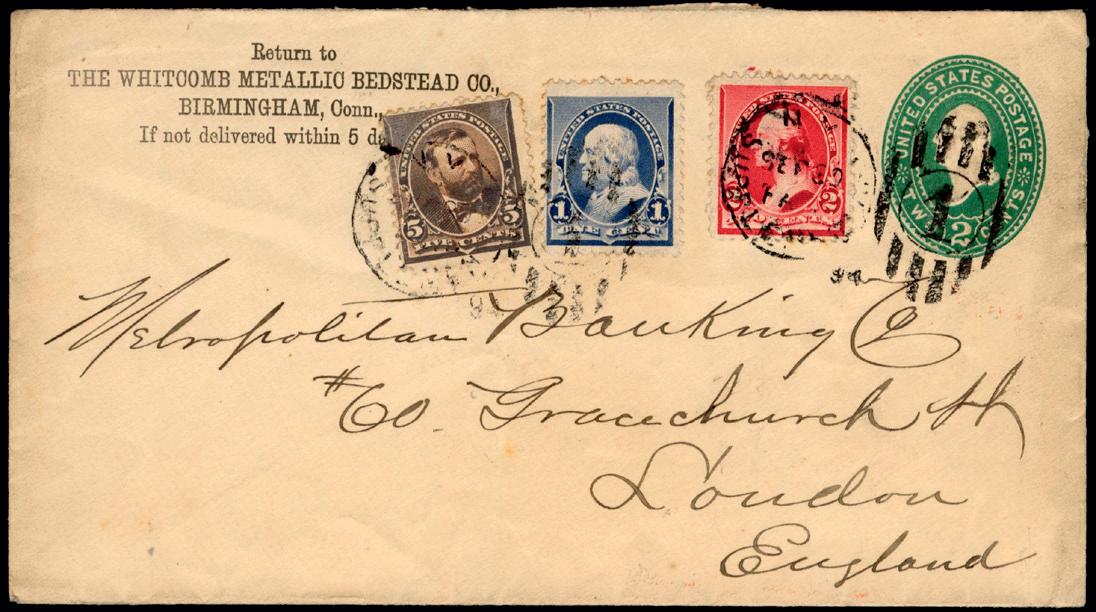 Return to
THE WHITCOMB METALLIC BEDSTEAD CO.,
BIRMINGHAM, Conn.,
If not delivered within 5
UNITED STATES POSTAGE
5 5
FIVE CENTS
UNITED STATES POSTAGE
1 1
ONE CENT
UNITED STATES POSTAGE
2 2
UNITED STATES POSTAGE
TWO CENTS
2
1
94
Metropolitan Banking Co
#60. Gracechurch St
London
England